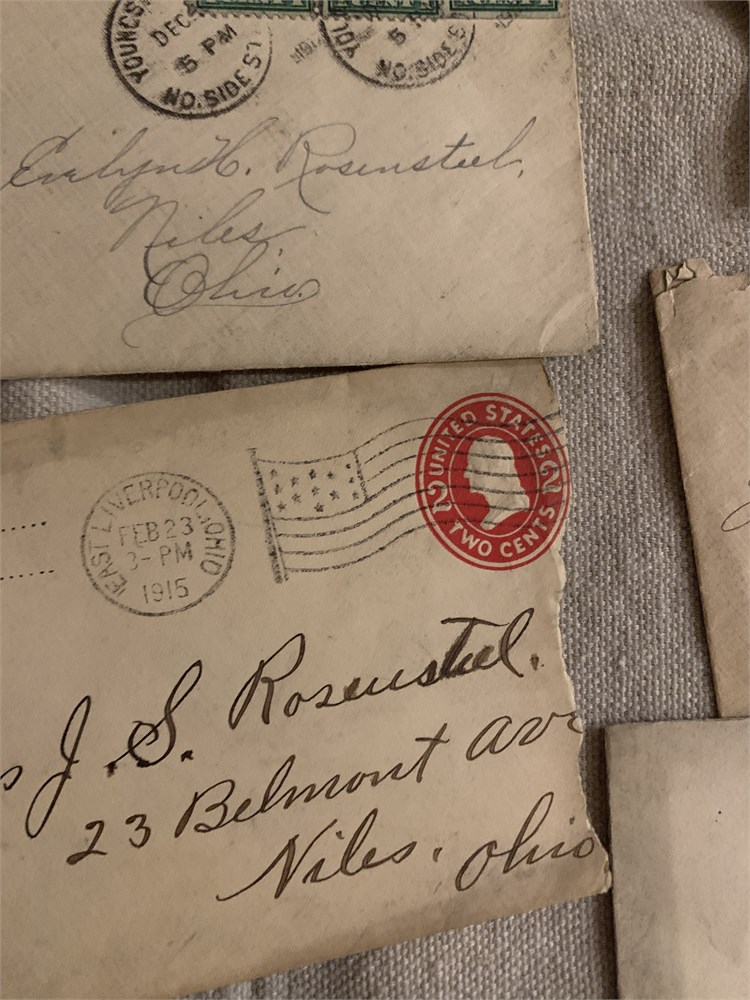 CENTS
YOUNGS
DEC
5 PM
NO. SIDE ST
YO
5
NO. SIDE S
191
Evelyn H. Rosensteel,
Niles,
Ohio.
EAST LIVERPOOL, OHIO
FEB 23
3-PM
1915
UNITED STATES
2 2
TWO CENTS
s J. S. Rosensteel.
23 Belmont Ave
Niles, Ohio